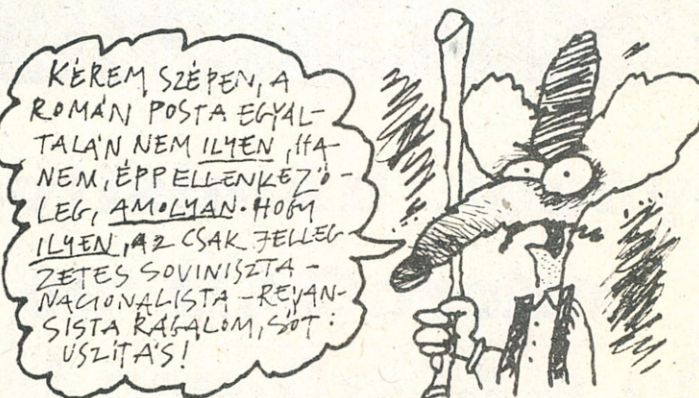 KÉREM SZÉPEN, A
ROMÁN POSTA EGYÁL-
TALÁN NEM ILYEN, HA-
NEM, ÉPP ELLENKEZŐ-
LEG, AMOLYAN. HOGY
ILYEN, AZ CSAK JELLEG
ZETES SOVINISZTA-
NACIONALISTA-REVAN-
SISTA RÁGALOM, SŐT:
USZÍTÁS!